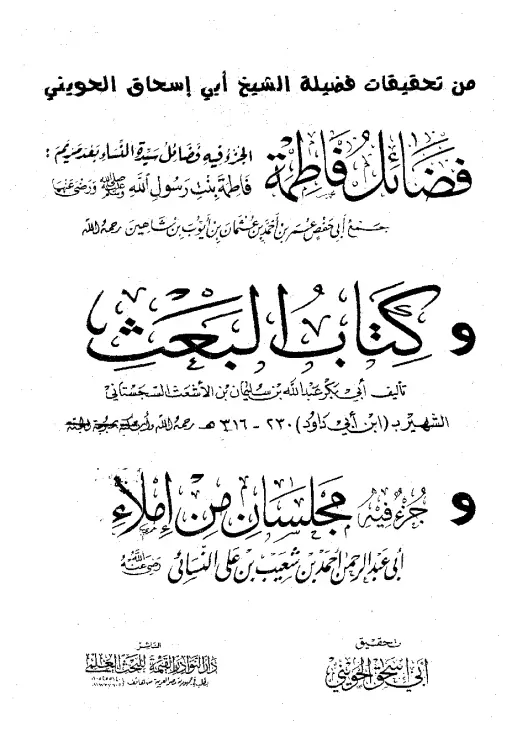 من تحقيقات فضيلة الشيخ أبي إسحاق الحويني
فضائل فاطمة
الجزء فيه فضائل سيدة النساء بعد مريم :
فاطمة بنت رسول الله ﷺ ورضي عنها
جمع أبي حفص عمر بن أحمد بن عثمان بن أيوب بن شاهين رحمه الله
و كتاب البعث
تأليف أبي بكر عبد الله بن سليمان بن الأشعث السجستاني
الشهير بـ (ابن أبي داود) ٢٣٠ - ٣١٦ هـ رحمه الله
و جزء فيه مجلسان من إملاء
أبي عبد الرحمن أحمد بن شعيب بن علي النسائي رضي الله عنه
تحقيق
أبي إسحق الحويني
الناشر
دار النوادر القيمة للبحث العلمي